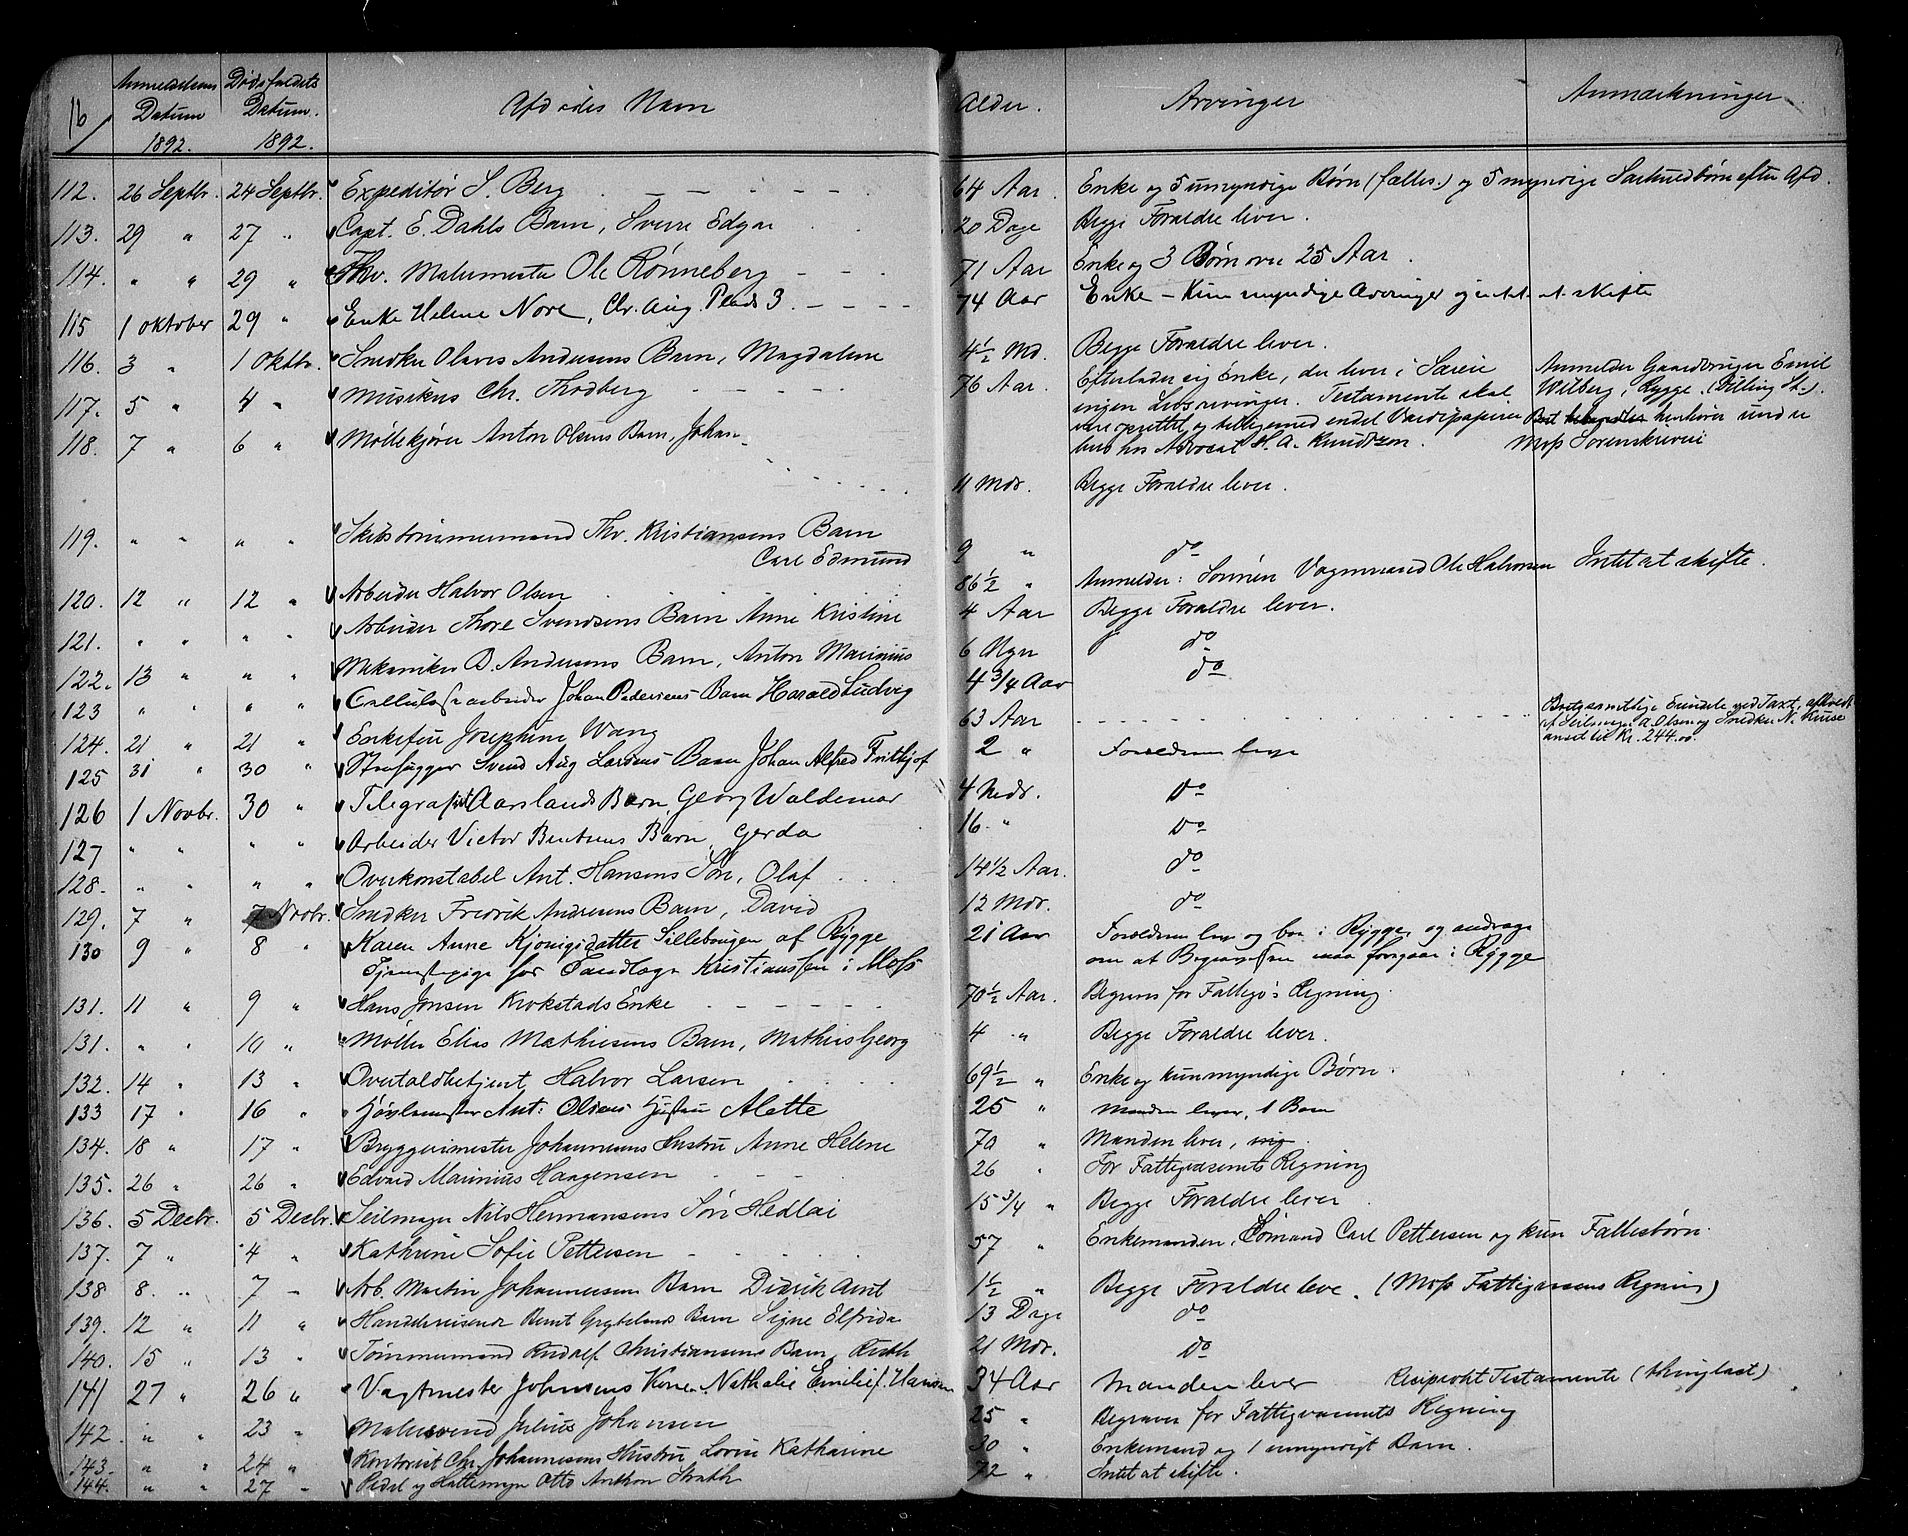 16
Anmeldelsens Datum 1892. Dødsfaldets Datum. 1892. Afdødes Navn Alder. Arvinger Anmærkninger
112. 26 Septbr. 24 Septbr. Expeditør S. Berg 64 Aar Enke og 5 umyndige Børn (fælles) og 5 myndige Særkuldbørn efter Afd.
113. 29 " 27 " Capt. E. Dahls Barn, Sverre Edgar 20 Dage Begge Forældre lever.
114. " " 29 " Fhv. Malermester Ole Rønneberg 71 Aar Enke og 3 Børn over 25 Aar.
115 1 Oktober 29 " Enke Helene Nore, Chr. Aug. Plads 3 74 Aar Enke – Kun myndige Arvinger og intet at skifte
116. 3 " 1 Oktbr. Snedker Olaves Andersens Barn, Magdalene 4½ Md. Begge Forældre lever.
117. 5 " 4 " Musikus Chr. Thodberg 76 Aar. Efterlader sig Enke, der lever i Sverie Anmelder Gaardbruger Emil
ingen Livsarvinger. Testamente skal Wilberg, Rygge (Dilling St.)
være oprettet og tilligemed endel Værdipapirer henhører under
bero hos Advocat H. A. Knudtzon. Moss Sorenskriveri
118. 7 " 6 " Møllekjører Anton Olsens Barn, Johan 11 Mdr. Begge Forældre lever.
119. " " " " Skibstømmermand Thv. Kristiansens Barn
Carl Edmund 9 " do
120. 12 " 12 " Arbeider Halvor Olsen 86½ " Anmelder: Sønnen Vognmand Ole Halvorsen Intet at skifte.
121. " " " " Arbeider Thore Svendsens Barn Anne Kristine 4 Aar Begge Forældre lever.
122. 13 " " " Mekaniker B. Andersens Barn, Anton Marinius 6 Ugr do
123 " " " " Cellulosearbeider Johan Pedersens Barn Harald Ludvig 4 3/4 Aar do
124. 21 " 21 " Enkefru Josephine Wang 63 Aar Bortgaaende Eiendele ved Taxt, afholdt
af Seilmager A. Olsen og Snedker N. Kruse
ansat til Kr. 244.00.
125 31 " 30 " Stenhugger Svend Aug Larsens Barn Johan Alfred Frithjof 2 " Forældrene leve
126 1 Novbr. 30 " Telegrafist Aarslands Barn, Georg Waldemar 4 Mdr. Do
127 " " " " Arbeider Victor Berntsens Barn, Gerda 16. " Do
128. " " " " Overkonstabel Ant. Hansens Søn, Olaf 14½ Aar. do
129. 7 " 7 Novbr. Snedker Fredrik Andresens Barn, David 12 Mdr. do
130 9 " 8 " Karen Anne Kjønigsdatter Sillebougen af Rygge 21 Aar Forældrene leve og bor i Rygge, og andrage
Tjenestepige for Tandlæge Kristianssen i Moss om at Begravelsen maa foregaa i Rygge
131. 11 " 9 " Hans Jensen Krokstads Enke 70½ Aar. Begraves for Fattigv's Regning.
131. " " 10 " Møller Elias Mathisens Barn, Mathis Georg 4 " Begge Forældre lever.
132. 14 " 13 " Overtoldbetjent Halvor Larsen 69½ " Enke og kun myndige Børn.
133 17 " 16 " Gjørtlermester Ant: Olsens Hustru Alette 25 " Manden lever, 1 Barn
134. 18 " 17 " Bryggerimester Johannesens Hustru Anne Helene 70 " Manden lever,
135. 26 " 26 " Edvard Marinius Haagensen 26 " For Fattigvæsenets Regning
136. 5 Decbr. 5 Decbr. Seilmager Nils Hermansens Søn Hedlai 15 3/4 " Begge Forældre lever
137. 7 " 4 " Kathrine Sofie Pettersen 57 " Enkemanden, Sømand Carl Pettersen og kun Fællesbørn.
138 8. " 7 " Arb. Martin Johannesens Barn Didrik Arnt 1½ " Begge Forældre leve. (Moss Fattigvæsens Regning)
139. 12 " 11 " Handelsreisende Bernt Grytelands Barn Signe Elfrida 13 Dage do
140. 15 " 13 " Tømmermand Rudolf Christiansens Barn, Ruth 21 Mdr. Do
141 27 " 26 " Vagtmester Johnsens Kone Nathalie Emilie f. Hansen 34 Aar Manden lever Reciprokt Testamente (thinglæst)
142. " " 23 " Malersvend Julius Johansen 25 " Begraves for Fattigvæsenets Regning
143. " " 24 " Kontorist Chr. Johannesens Hustru Lovise Katharine 30 " Enkemand og 1 umyndigt Barn.
144. " " 27 " Pedel og Hattemager Otto Anthon Strøth 72 " Intet at skifte.